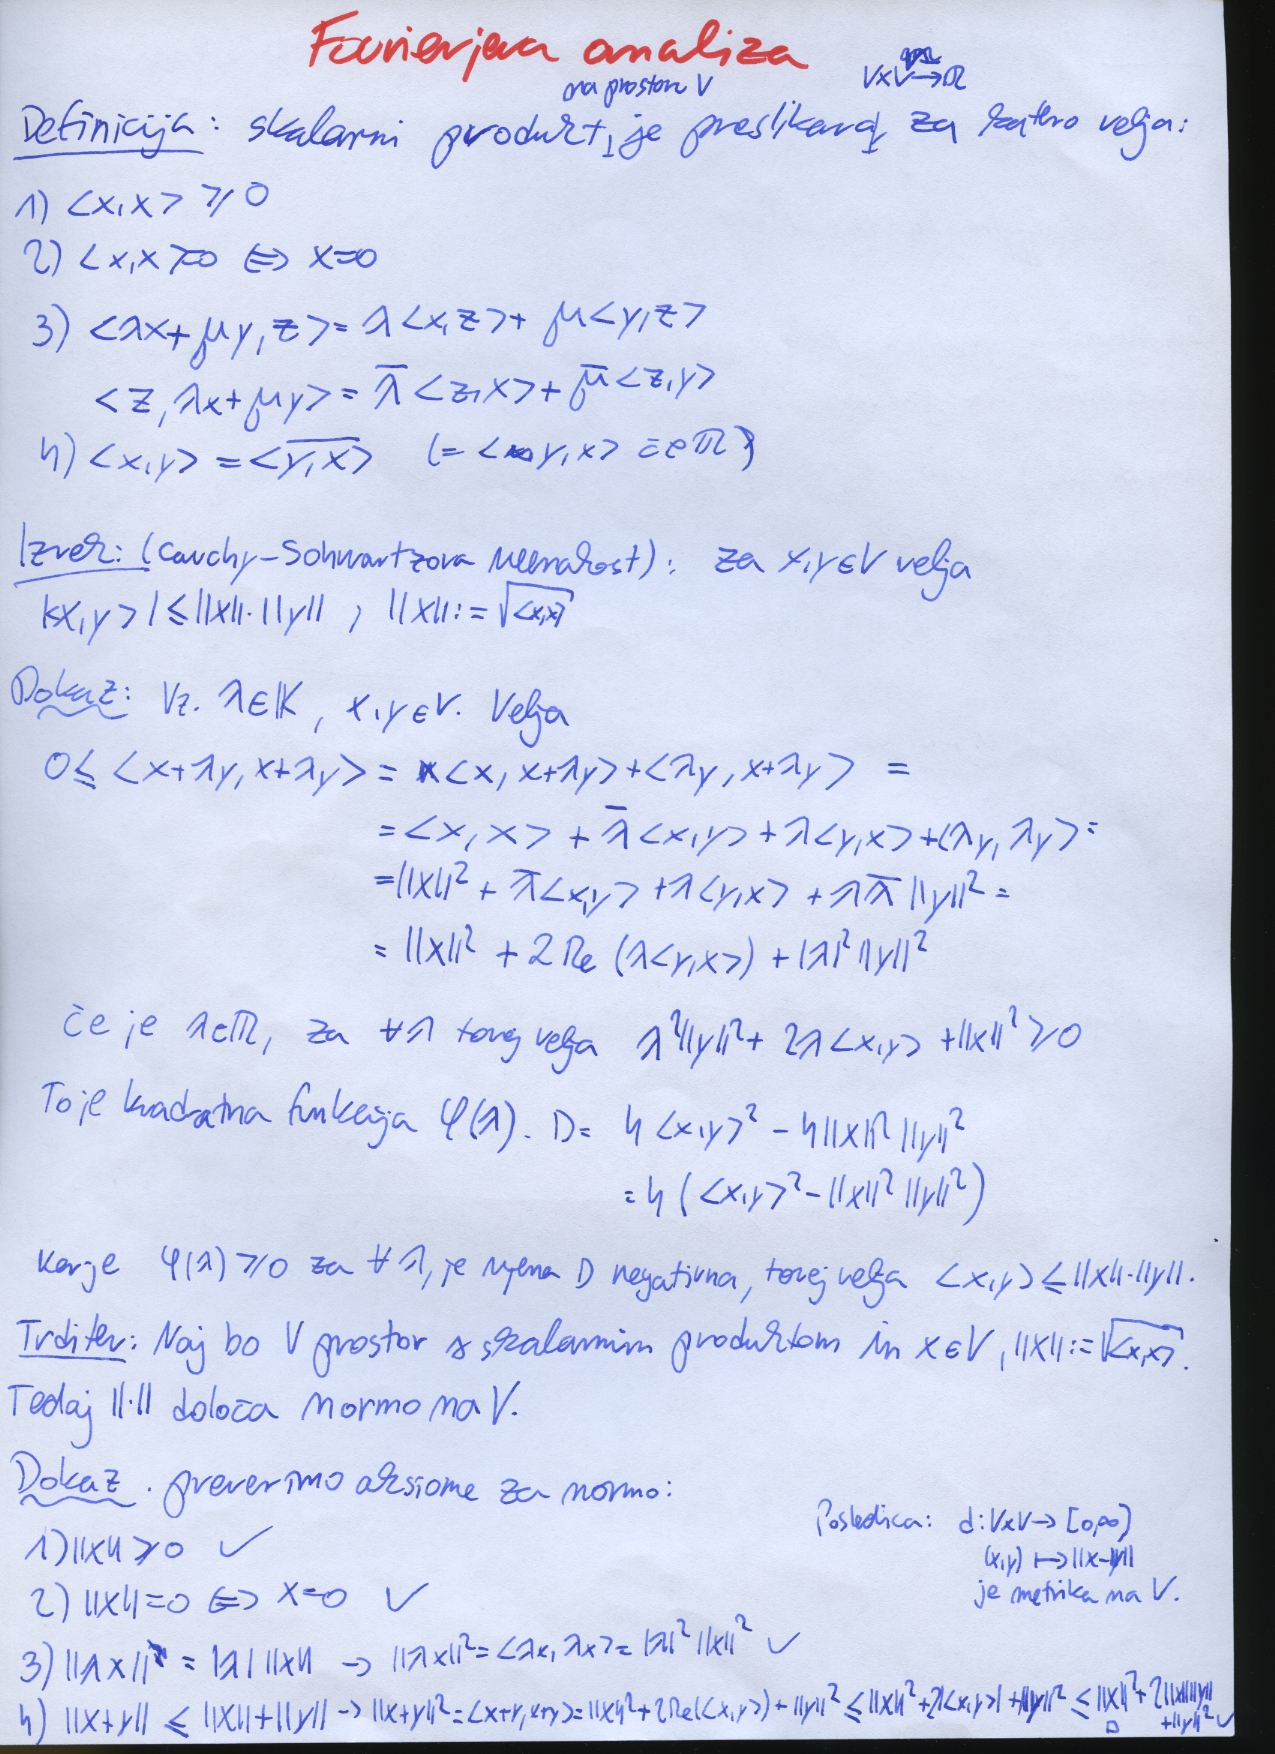 Fourierjeva analiza
na prostoru V
V×V→ℝ
Definicija: skalarni produkt je preslikava, za katero velja:
1) <x,x> ≥ 0
2) <x,x>=0 ⇔ x=0
3) <λx+μy,z> = λ<x,z> + μ<y,z>
<z,λx+μy> = λ̄<z,x> + μ̄<z,y>
4) <x,y> = <y,x>‾ (= <y,x> če ℝ)
Izrek: (Cauchy-Schwartzova neenakost): za x,y∈V velja
|<x,y>| ≤ ||x||·||y||, ||x|| := √<x,x>
Dokaz: Vz. λ∈𝕂, x,y∈V. Velja
0 ≤ <x+λy,x+λy> = <x,x+λy> + <λy,x+λy> =
= <x,x> + λ̄<x,y> + λ<y,x> + <λy,λy> =
= ||x||² + λ̄<x,y> + λ<y,x> + λλ̄||y||² =
= ||x||² + 2Re(λ<y,x>) + |λ|²||y||²
če je λ∈ℝ, za ∀λ torej velja λ²||y||² + 2λ<x,y> + ||x||² ≥ 0
To je kvadratna funkcija φ(λ). D = 4<x,y>² - 4||x||²||y||²
= 4(<x,y>² - ||x||²||y||²)
Ker je φ(λ) ≥ 0 za ∀λ, je njena D negativna, torej velja <x,y> ≤ ||x||·||y||.
Trditev: Naj bo V prostor s skalarnim produktom in x∈V, ||x|| := √<x,x>.
Tedaj ||·|| določa normo na V.
Dokaz. preverimo aksiome za normo:
1) ||x|| ≥ 0 ✓
2) ||x||=0 ⇔ x=0 ✓
3) ||λx|| = |λ| ||x|| → ||λx||² = <λx,λx> = |λ|²||x||² ✓
4) ||x+y|| ≤ ||x||+||y|| → ||x+y||² = <x+y,x+y> = ||x||² + 2Re(<x,y>) + ||y||² ≤ ||x||² + 2|<x,y>| + ||y||² ≤ ||x||² + 2||x||||y||
+||y||² ✓
□
Posledica: d: V×V → [0,∞)
(x,y) ↦ ||x-y||
je metrika na V.